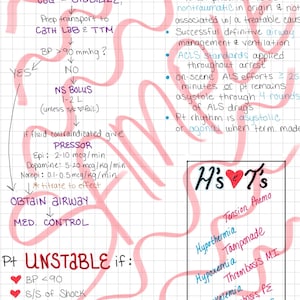 Prep transport to
CATH LAB & TTM
BP >90 mmhg?
YES
NO
NS BOLUS
1-2 L
(unless its vfib)
if fluid contraindicated give
PRESSOR
Epi: 2-10 mcg/min
Dopamine: 5-20 mcg/kg/min
Norepi: 0.1-0.5 mcg/kg/min
*titrate to effect
OBTAIN AIRWAY
MED. CONTROL
Pt UNSTABLE if:
BP <90
S/S of Shock
nontraumatic in origin & not
associated w/ a treatable cause
• Successful definitive airway
management & ventilation
• ACLS standards applied
throughout arrest
• on-scene ALS efforts
minutes or pt remains
asystole through 4 rounds
of ALS drugs
• Pt rhythm is asystolic
or agonal when term. made
H's T's
Tension Pnemo
Hypothermia
Tamponade
Hypoxemia
Thombosis M.I.
PE
Sample